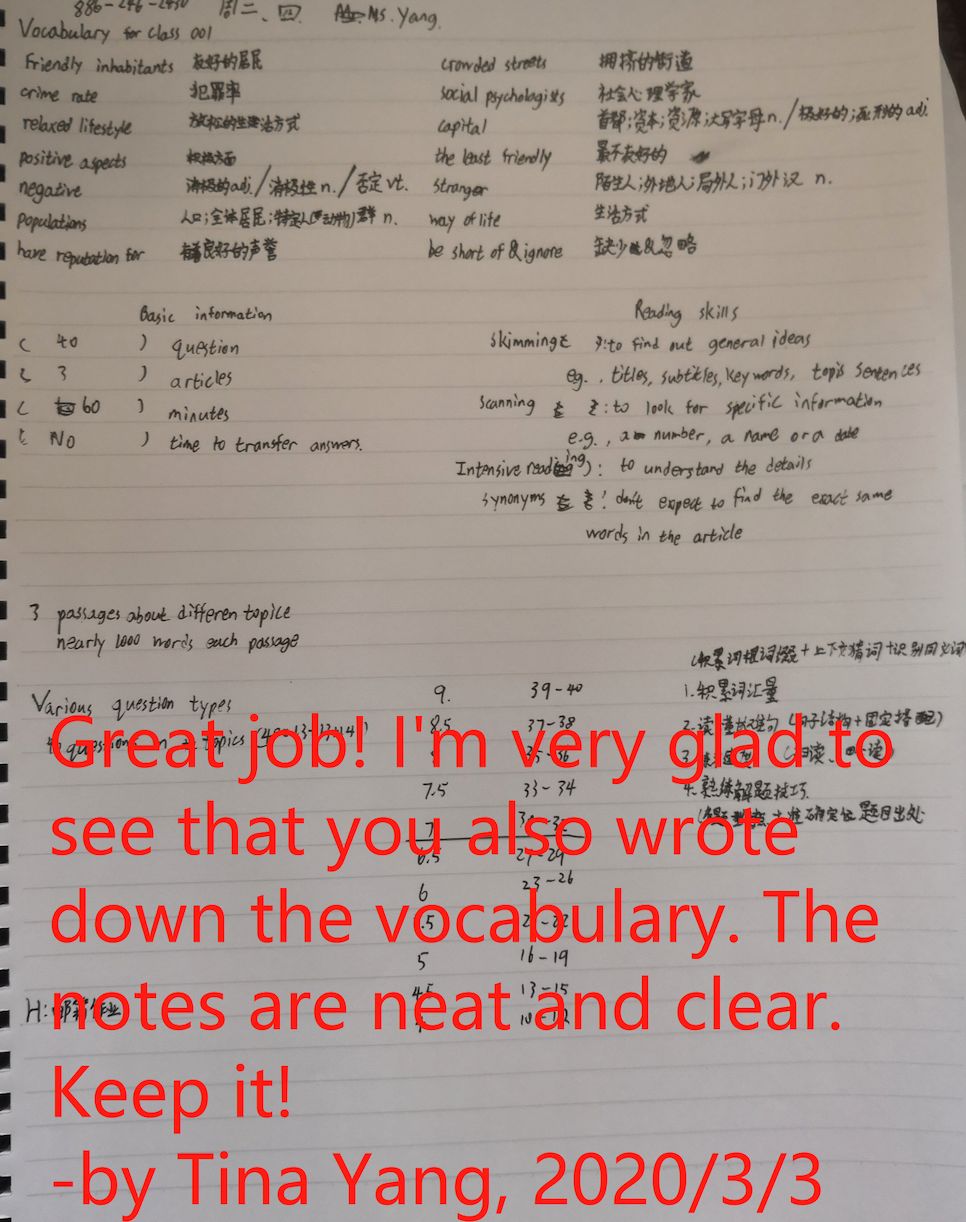 886-246-2450 周二、四 Ms. Yang.
Vocabulary for class 001
Friendly inhabitants 友好的居民 crowded streets 拥挤的街道
crime rate 犯罪率 social psychologists 社会心理学家
relaxed lifestyle 放松的生活方式 capital 首都;资本;资源;大写字母 n. / 极好的; adj.
positive aspects 积极方面 the least friendly 最不友好的
negative 消极的adj./消极性 n./否定 vt. stranger 陌生人;外地人;局外人;门外汉 n.
populations 人口;全体居民;特定人(或动物)群 n. way of life 生活方式
have reputation for 有良好的声誉 be short of & ignore 缺少&忽略
Basic information Reading skills
( 40 ) question skimming : to find out general ideas
( 3 ) articles eg., titles, subtitles, key words, topis sentences
( 60 ) minutes scanning : to look for specific information
( NO ) time to transfer answers. e.g., a number, a name or a date
Intensive reading): to understand the details
synonyms : don't expect to find the exact same
words in the article
3 passages about differen topice
nearly 1000 words each passage
(积累词根词缀+上下文猜词+识别同义词
Various question types 9. 39-40 1.积累词汇量
questions in topics 8.5 37-38 2.读懂长难句 (句子结构+固定搭配)
7.5 33-34 4.熟练解题技巧
准确定位题目出处
6.5 27-29
6 23-26
5 16-19
4.5 13-15
H: 邮箱作业
Great job! I'm very glad to
see that you also wrote
down the vocabulary. The
notes are neat and clear.
Keep it!
-by Tina Yang, 2020/3/3